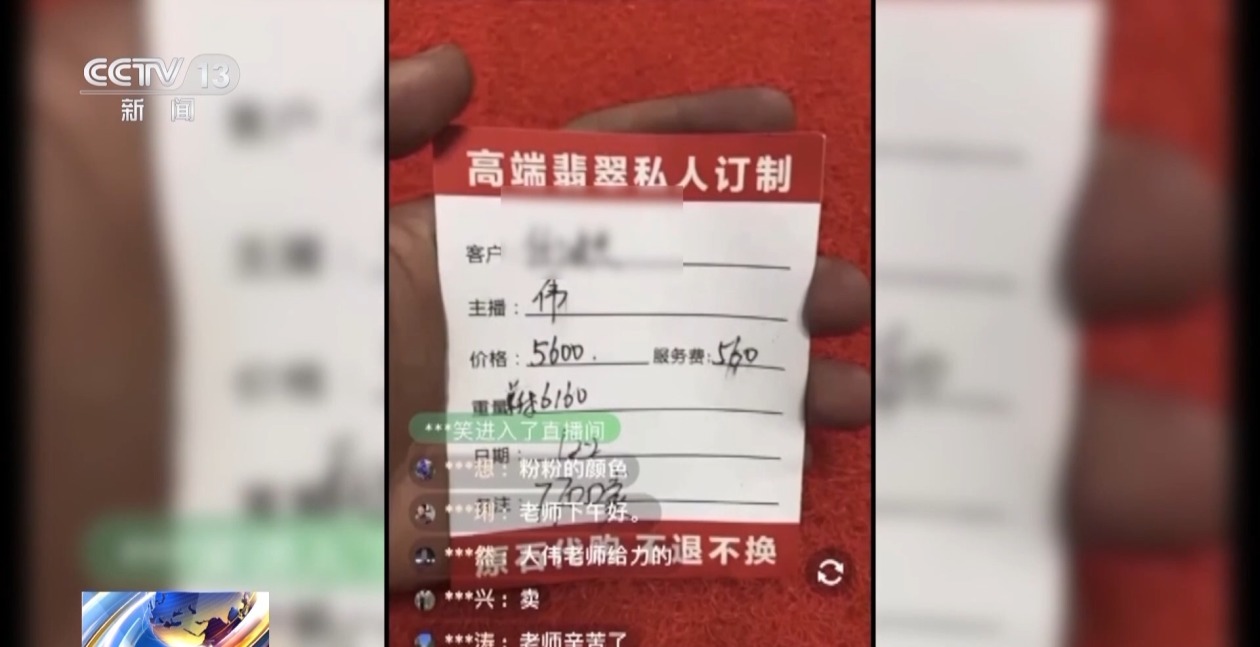 CCTV 13
新闻
高端翡翠私人订制
客户
主播：伟
价格：5600. 服务费：560
重量 6160
***笑进入了直播间
日期：
***想：粉粉的颜色
***琍：老师下午好。
***然：大伟老师给力的
原石代购 不退不换
***兴：卖
***涛：老师辛苦了